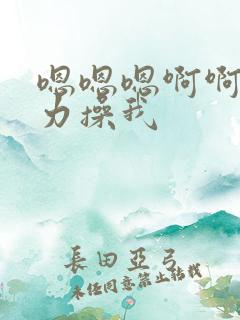 嗯嗯嗯啊啊
力操我
長田亞弓
未经同意禁止转载